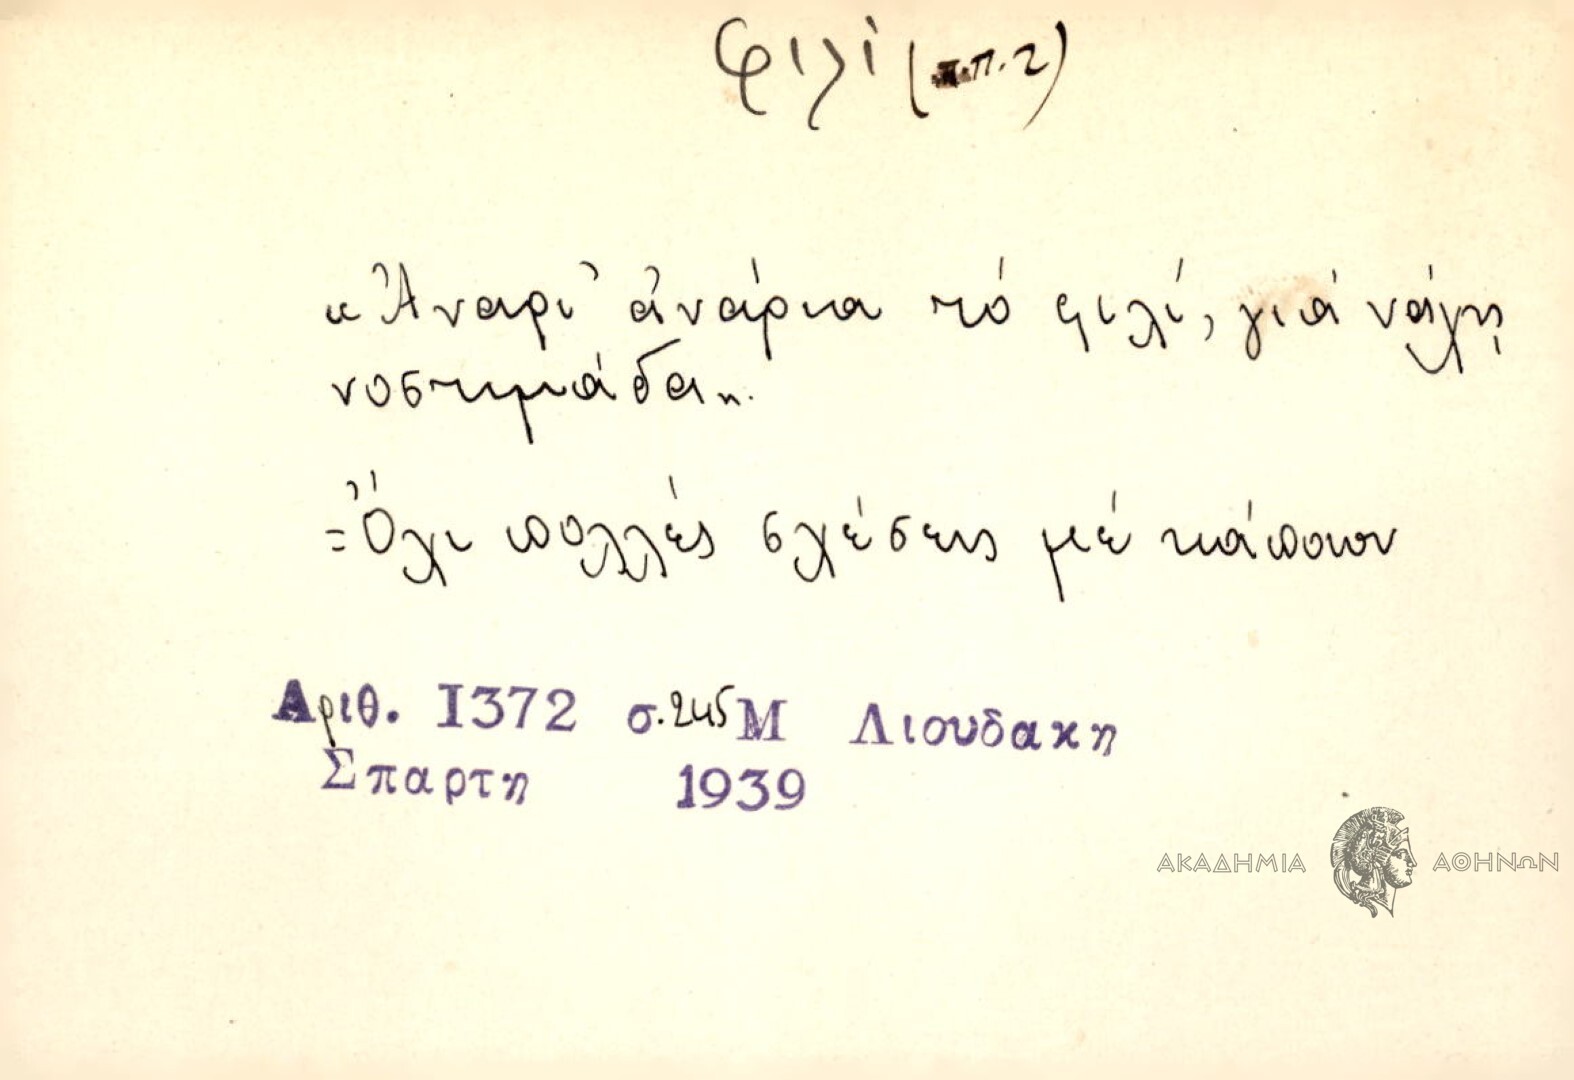 φιλί (π.π. 2)
«Ἀναρι' ἀνάρια τό φιλί, γιά νάχῃ
νοστιμάδα».
=Ὄχι πολλές σχέσεις μέ κάποιον
Αριθ. 1372 σ. 245 Μ Λιουδακη
Σπαρτη 1939
ΑΚΑΔΗΜΙΑ ΑΘΗΝΩΝ